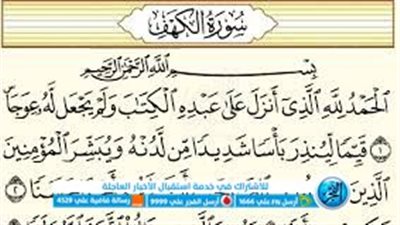 سُورَةُ الكَهْفِ
بِسْمِ اللَّهِ الرَّحْمَٰنِ الرَّحِيمِ
الْحَمْدُ لِلَّهِ الَّذِي أَنزَلَ عَلَىٰ عَبْدِهِ الْكِتَابَ وَلَمْ يَجْعَل لَّهُ عِوَجَا
١ قَيِّمًا لِّيُنذِرَ بَأْسًا شَدِيدًا مِّن لَّدُنْهُ وَيُبَشِّرَ الْمُؤْمِنِينَ
الَّذِينَ حَسَنًا ٢
للأشتراك في خدمة استقبال الأخبار العاجلة
أرسل FN علي 1666 أرسل الفجر علي 9999 رسالة فاضية علي 4529
الفجر